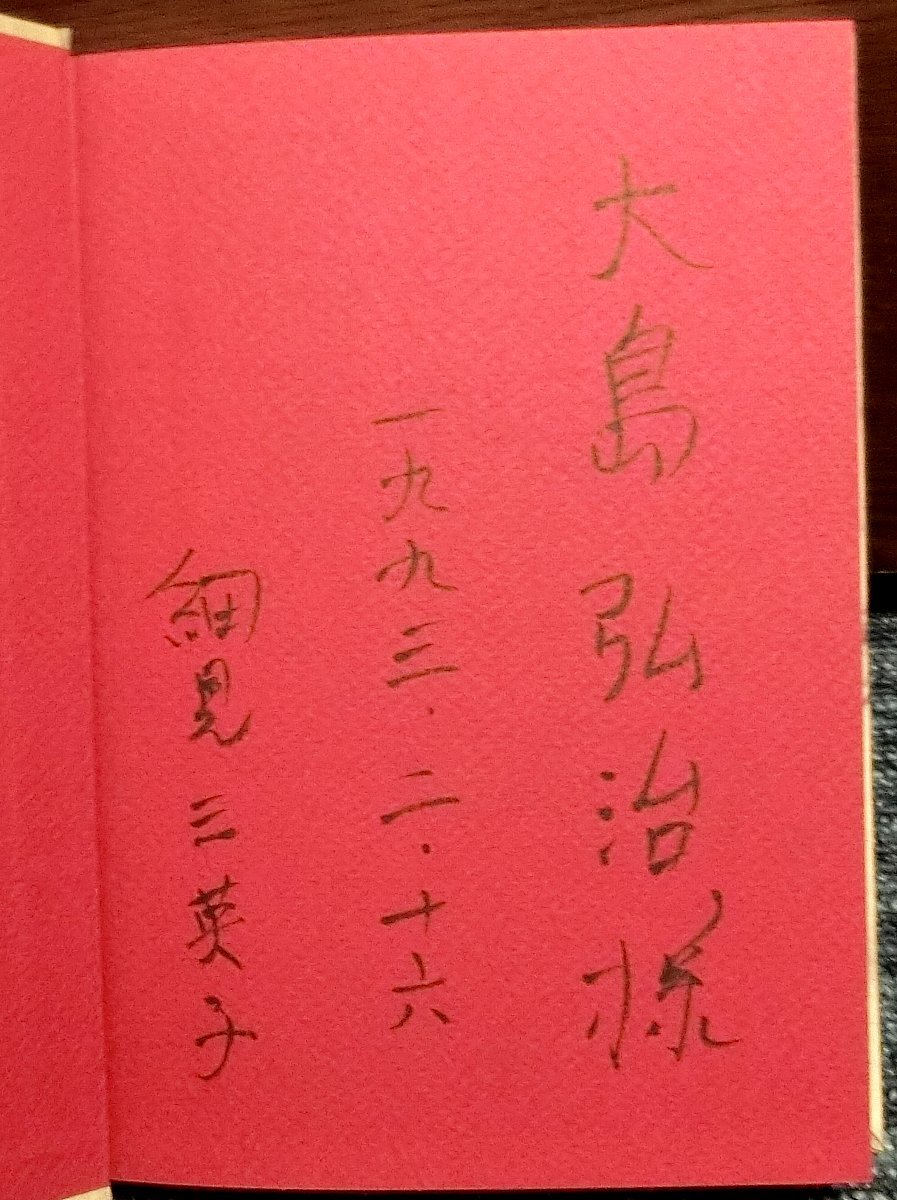 大島弘治様
一九九三・二・十六
細見三英子